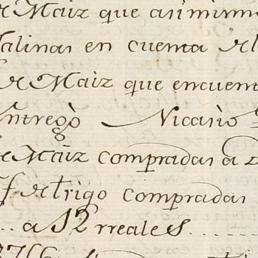 de Maiz que asimismo
Salinas en cuenta de l
de Maiz que en cuent
entregò Nicasio
de Maiz compradas a D
f de trigo compradas
a 12 rreales